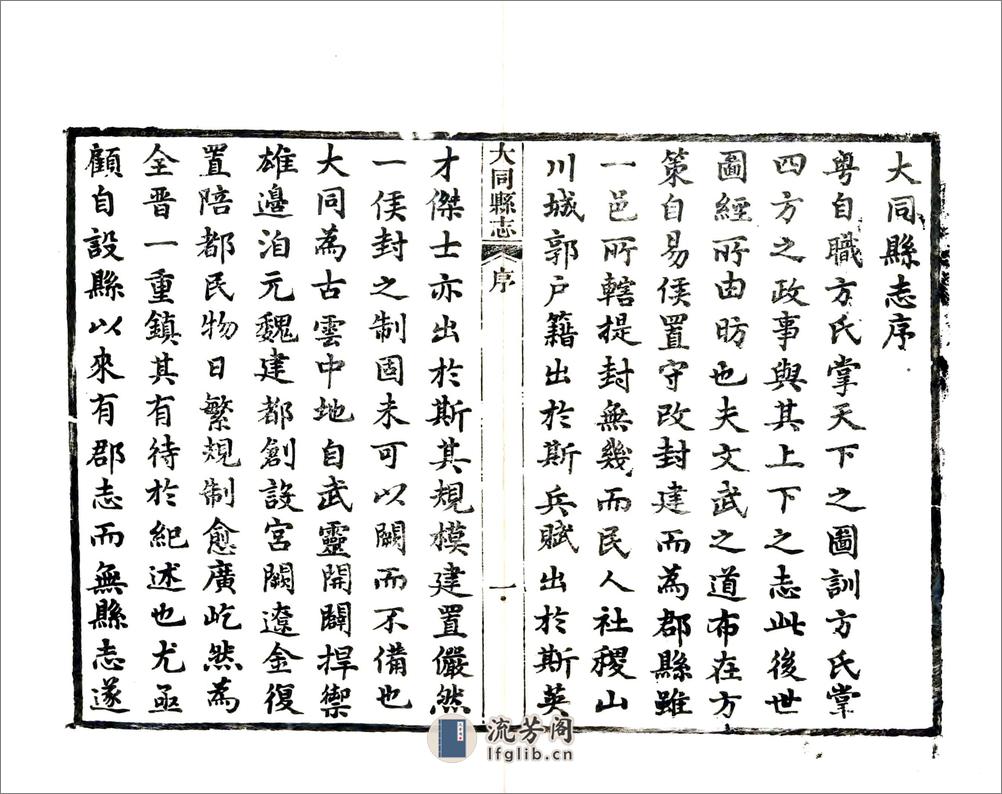 大同縣志序
粤自職方氏掌天下之圖訓方氏掌
四方之政事與其上下之志此後世
圖經所由昉也夫文武之道布在方
策自易侯置守改封建而為郡縣雖
一邑所轄提封無幾而民人社稷山
川城郭戸籍出於斯兵賦出於斯英
大同縣志
序
一
才傑士亦出於斯其規模建置儼然
一侯封之制固未可以闕而不備也
大同為古雲中地自武靈開闢捍禦
雄邊洎元魏建都創設宮闕遼金復
置陪都民物日繁規制愈廣屹然為
全晉一重鎮其有待於紀述也尤亟
顧自設縣以來有郡志而無縣志遂
流芳阁
lfglib.cn